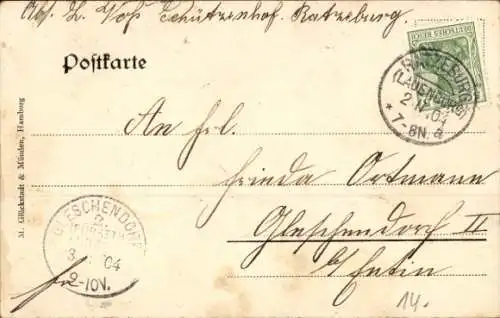 Abs. L. Voß Schützenhof Ratzeburg.
Postkarte
DEUTSCHES REICH
RATZEBURG
(LAUENBURG)
04
* 7-8N. a
An Frl.
Frieda Ortmann
Gleschendorf II
b/ Eutin
M. Glückstadt & Münden, Hamburg
GLESCHENDORF
2.
3 04
9-10V.
14.